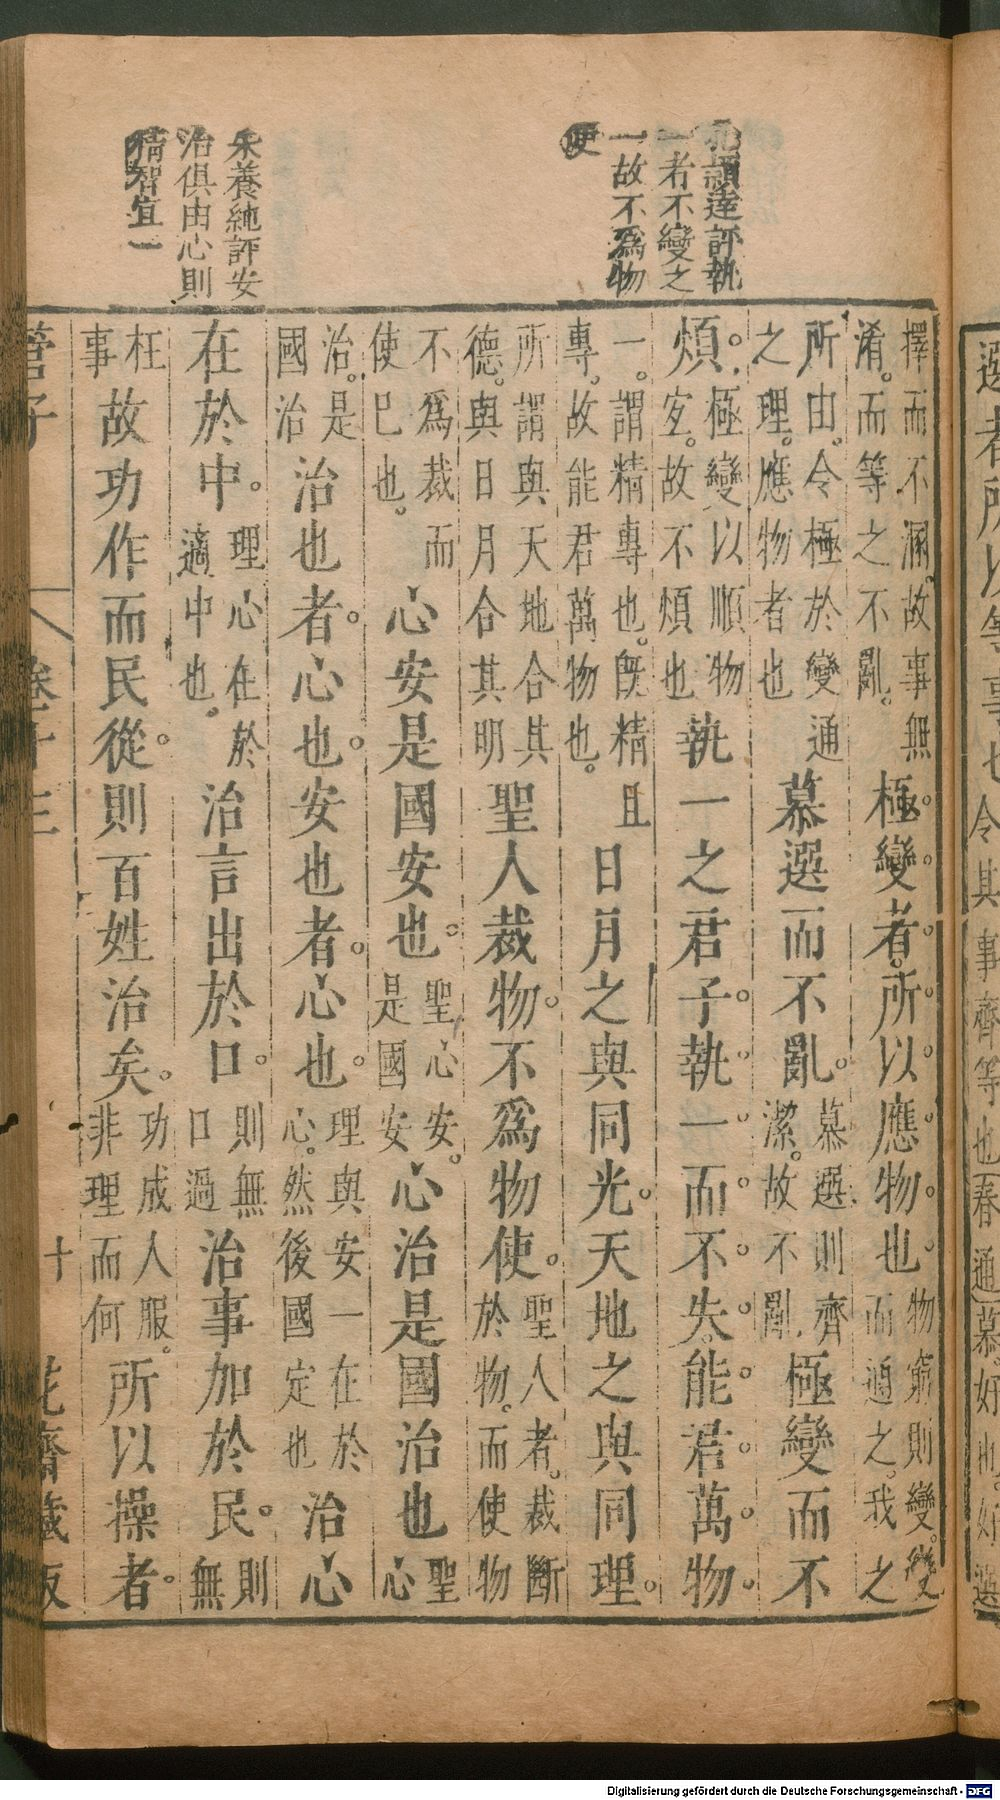 選者所以等事也令其事齊等也春通慕好也好選
孔穎達評執
一者不變之
一故不爲物
使
朱養純評安
治俱由心則
精智宜一
擇而不溷。故事無淆。而等之不亂。極變者。所以應物也物窮則變。變而通之。我之
所由。令極於變通之理。應物者也慕選而不亂。慕選則齊潔。故不亂極變而不
煩。極變以順物㝎。故不煩也執一之君子。執一而不失。能君萬物。
一。謂精專也。旣精且專。故能君萬物也。日月之與同光。天地之與同理。
所謂與天地合其德。與日月合其明聖人裁物。不爲物使。聖人者。裁斷於物。而使物
不爲裁而使巳也。心安是國安也。聖心安。是國安心治是國治也聖心
治。是國治治也者。心也。安也者。心也。理與安一在於心。然後國定也治心
在於中。理心在於適中也。治言出於口。則無口過治事加於民。則無
枉事故功作而民從。則百姓治矣。功成人服。非理而何所以操者。
管子 卷十三 十 花齋藏板
Digitalisierung gefördert durch die Deutsche Forschungsgemeinschaft - DFG